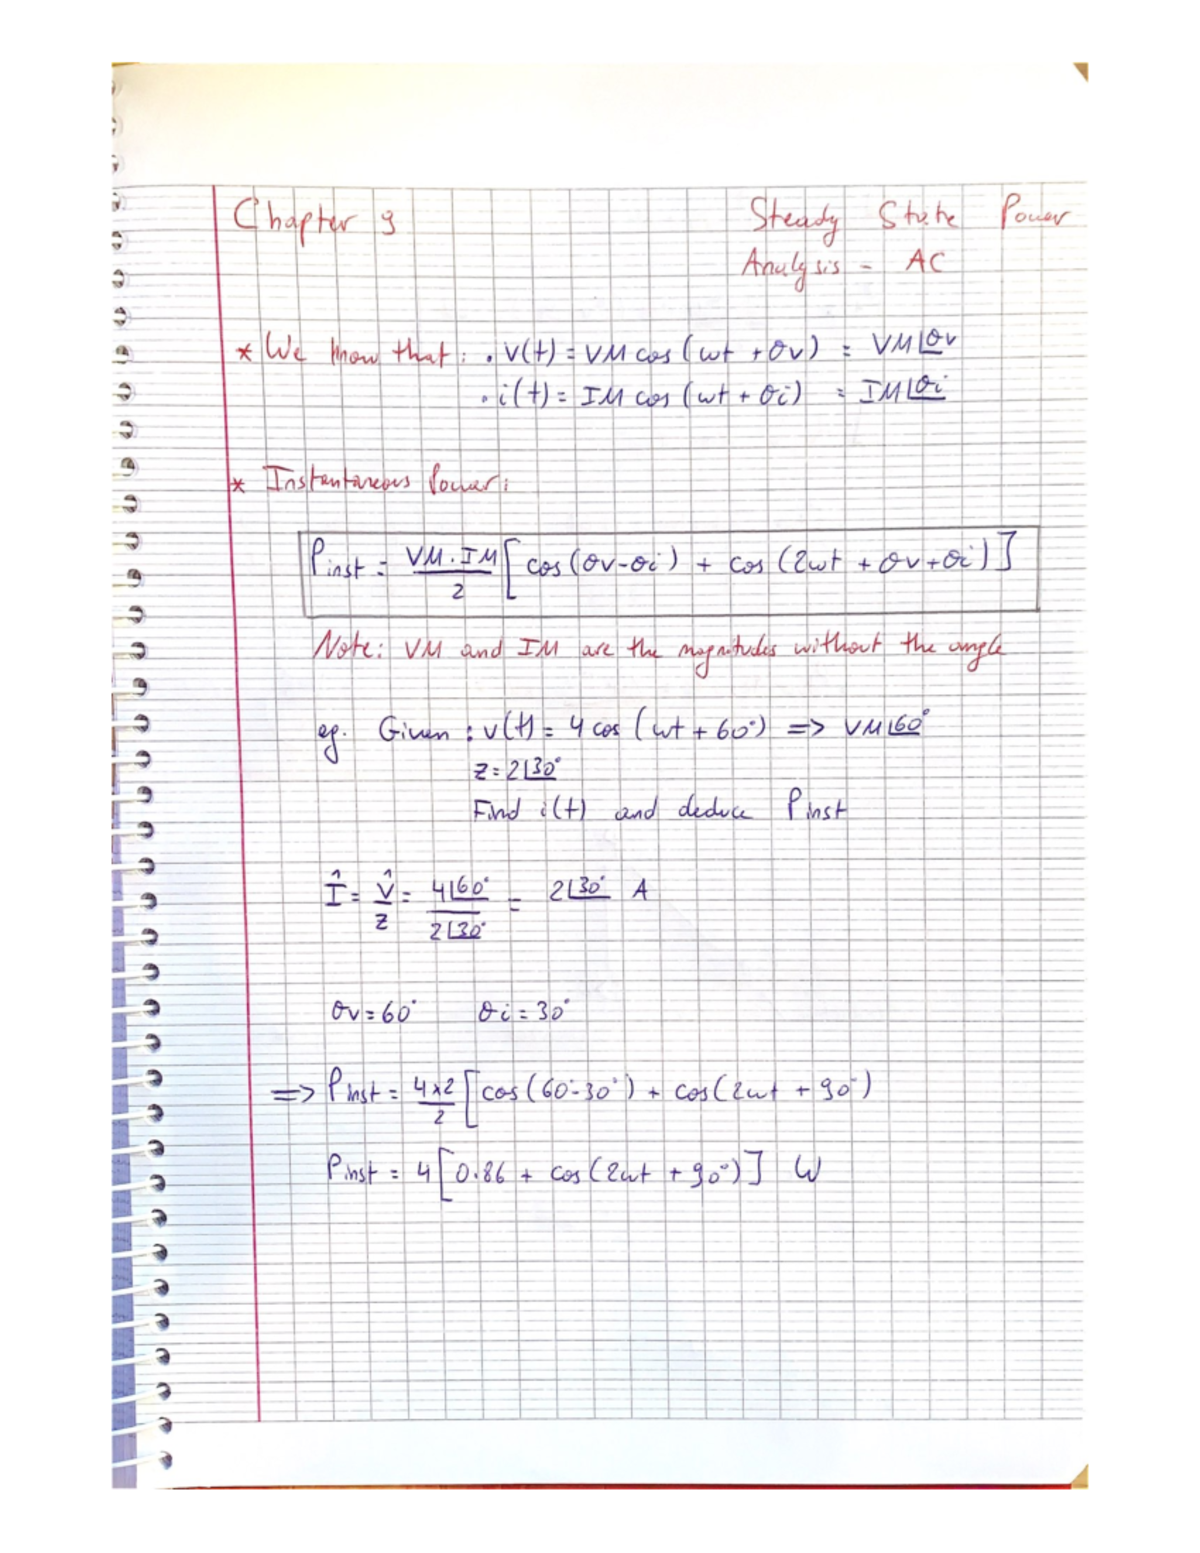 Chapter 9
Steady State Power
Analysis - AC
* We know that: • v(t) = VM cos (ωt + θv) = VM∠θv
• i(t) = IM cos (ωt + θi) = IM∠θi
* Instantaneous Power:
Pinst = VM.IM/2 [cos(θv-θi) + cos(2ωt + θv+θi)]
Note: VM and IM are the magnitudes without the angle
eg. Given : v(t) = 4 cos (ωt + 60°) => VM∠60°
Z = 2∠30°
Find i(t) and deduce Pinst
Î = V̂/Z = 4∠60°/2∠30° = 2∠30° A
θv = 60° θi = 30°
=> Pinst = 4×2/2 [cos(60°-30°) + cos(2ωt + 90°)
Pinst = 4[0.86 + cos(2ωt + 90°)] W